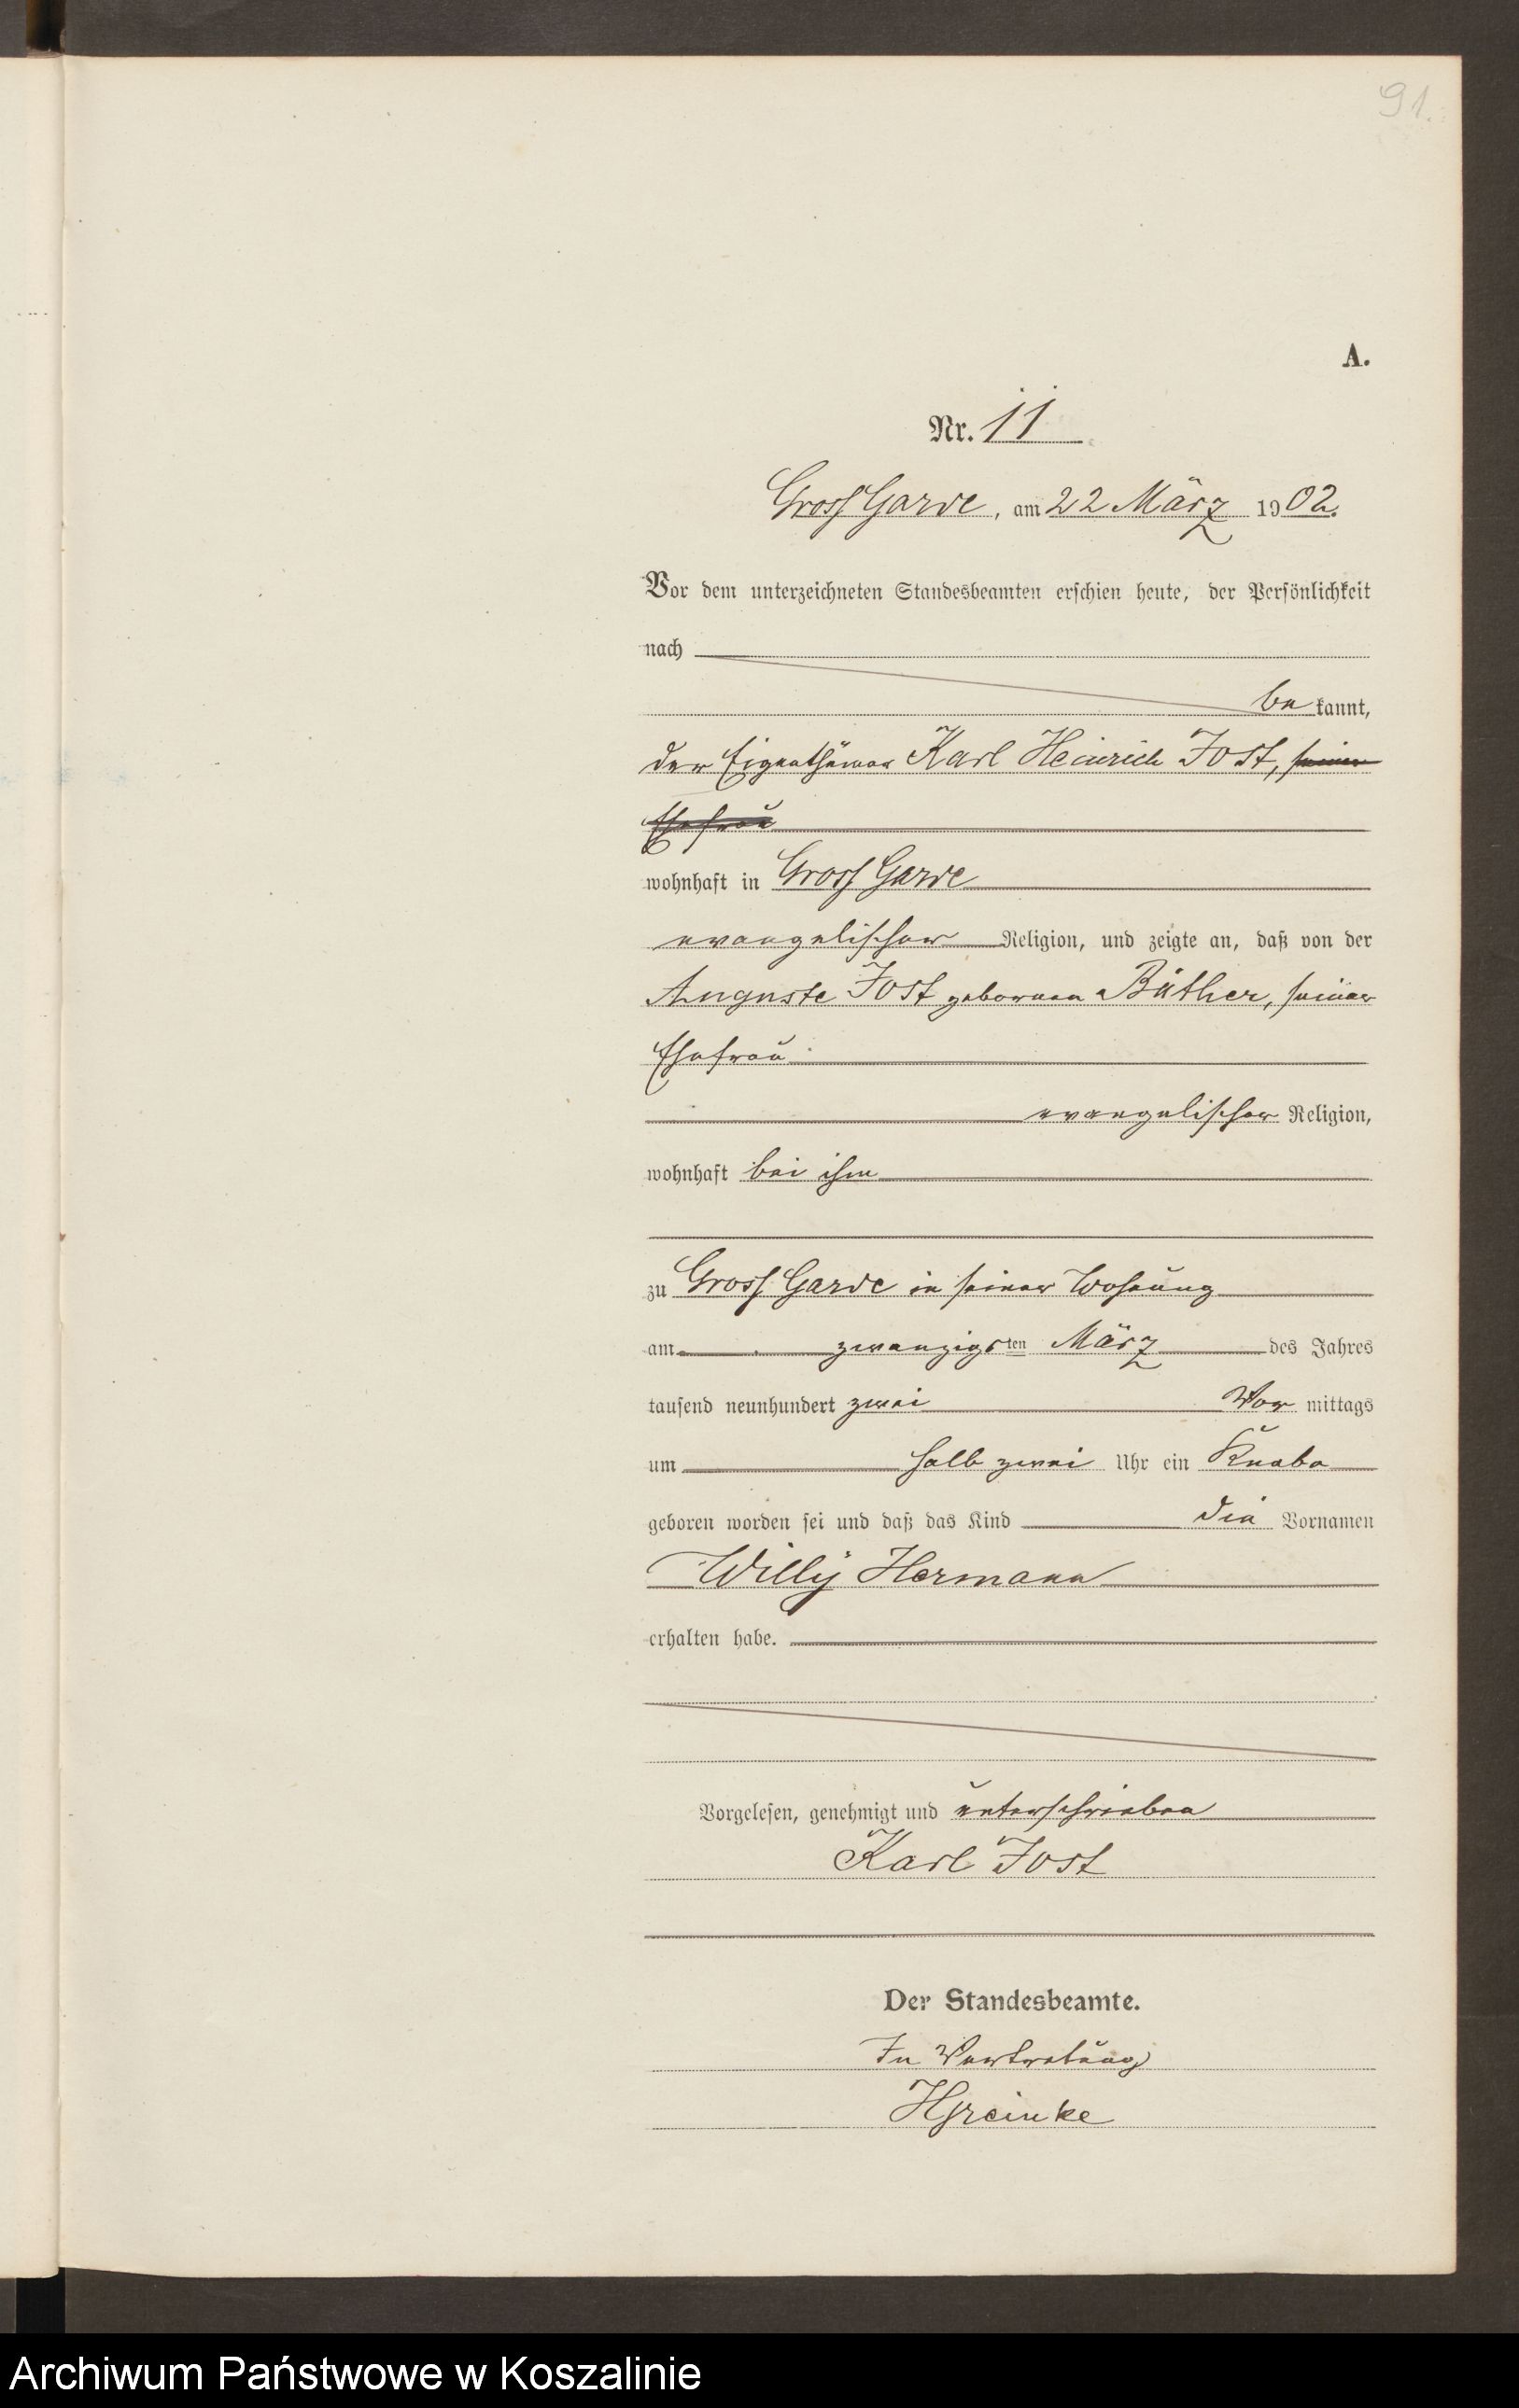 91.
A.
Nr. 11
Gross Garde, am 22 März 1902.
Vor dem unterzeichneten Standesbeamten erschien heute, der Persönlichkeit
nach
bekannt,
der Eigenthümer Karl Heinrich Jost, seiner
Ehefrau
wohnhaft in Gross Garde
evangelischer Religion, und zeigte an, daß von der
Auguste Jost geborenen Büther, seiner
Ehefrau
evangelischer Religion,
wohnhaft bei ihm
zu Gross Garde in seiner Wohnung
am zwanzigsten März des Jahres
tausend neunhundert zwei Vor mittags
um halb zwei Uhr ein Knabe
geboren worden sei und daß das Kind die Vornamen
Willy Hermann
erhalten habe.
Vorgelesen, genehmigt und unterschrieben
Karl Jost
Der Standesbeamte.
In Vertretung
Archiwum Państwowe w Koszalinie